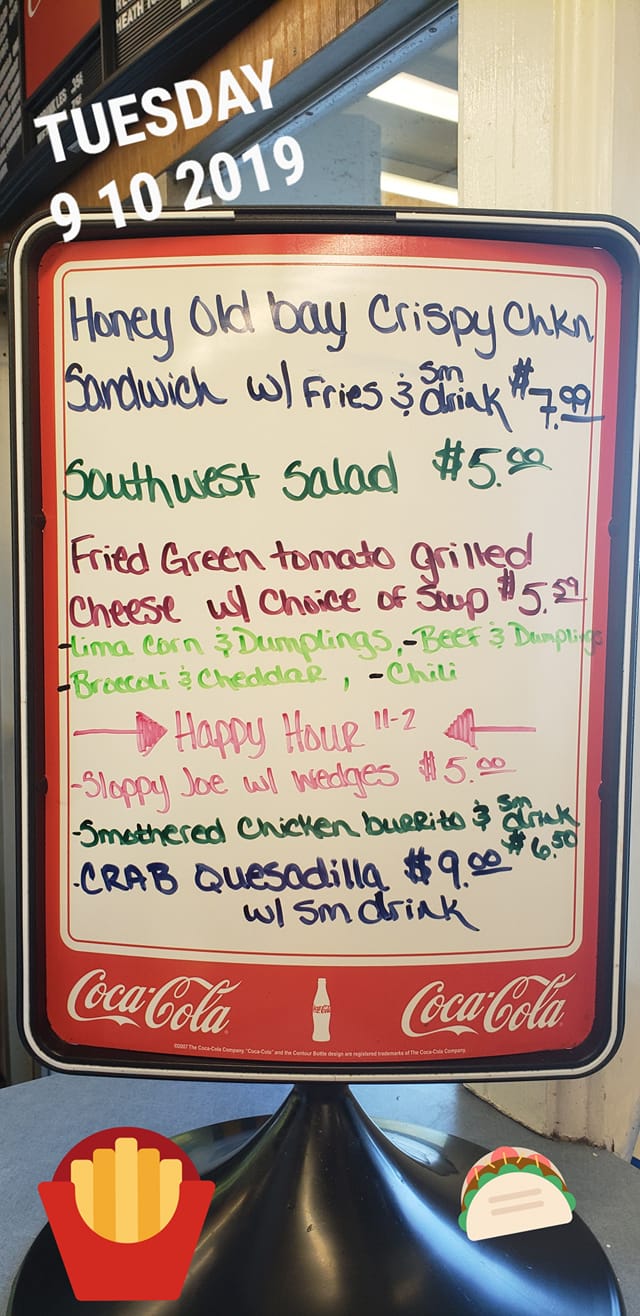 HEATH
TUESDAY
9 10 2019
Honey Old bay Crispy Chkn
Sandwich w/ Fries & sm drink $7.99
Southwest Salad $5.00
Fried Green tomato grilled
Cheese w/ Choice of Soup $5.59
-Lima Corn & Dumplings, -Beef & Dumplings
-Broccoli & Cheddar, -Chili
Happy Hour 11-2
-Sloppy Joe w/ Wedges $5.00
-Smothered Chicken burrito & sm drink $6.50
-CRAB Quesadilla $9.00
w/ Sm drink
Coca-Cola Coca-Cola
©2007 The Coca-Cola Company. "Coca-Cola" and the Contour Bottle design are registered trademarks of The Coca-Cola Company.